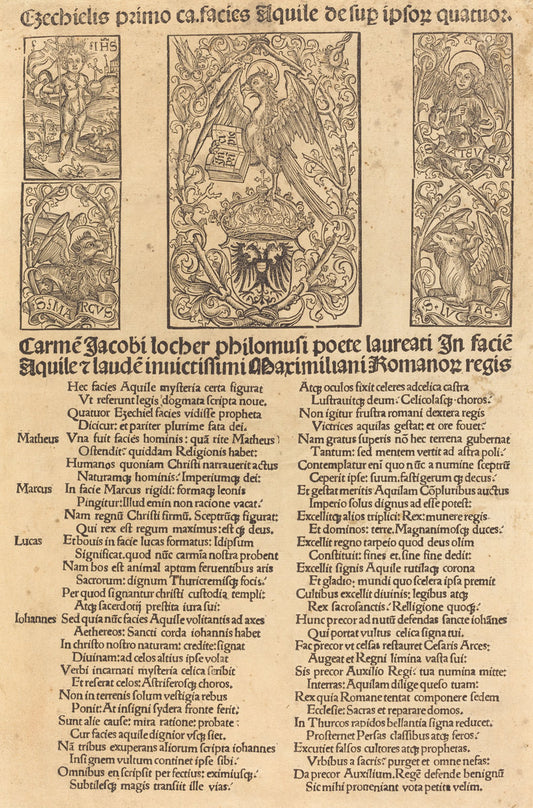 Ezechielis primo ca. facies Aquile de sup ipsoꝝ quatuor.
IHS
S MATEVS
In pri
cipio
S MARCVS
S LVCAS
Carmē Jacobi locher philomusi poete laureati In faciē
Aquile ⁊ laudē inuictissimi Maximiliani Romanoꝝ regis
Hec facies Aquile mysteria certa figurat
Vt referunt legis dogmata scripta noue.
Quatuor Ezechiel facies vidisse propheta
Dicitur: et pariter plurime fata dei.
Matheus Vna fuit facies hominis: quā tite Matheus
Ostendit: quiddam Religionis habet:
Humanos quoniam Christi narrauerit actus
Naturamꝗ hominis: Imperiumꝗ dei:
Marcus In facie Marcus rigidi: formaꝗ leonis
Pingitur: Illud enim non ratione vacat.
Nam regnū Christi firmū. Sceptrūꝗ figurat:
Qui rex est regum maximus: estꝗ deus.
Lucas Et bouis in facie lucas formatus: Idipsum
Significat. quod nūc carmīa nostra probent
Nam bos est animal aptum feruentibus aris
Sacrorum: dignum Thuricremisꝗ focis.
Per quod signantur christi custodia templi:
Atꝗ sacerdotij prestita iura sui:
Iohannes Sed quia nūc facies Aquile volitantis ad axes
Aethereos: Sancti corda iohannis habet
In christo nostro naturam: credite: signat
Diuinam: ad celos altius ipse volat
Verbi incarnati mysteria celica scribit
Et reserat celos: Astriferosꝗ choros.
Non in terrenis solum vestigia rebus
Ponit: At insigni sydera fronte ferit.
Sunt alie cause: mira ratione: probate:
Cur facies aquile dignior vsꝗ siet.
Nā tribus exuperans aliorum scripta iohannes
Insignem vultum continet ipse sibi.
Omnibus en scripsit perfectius: eximiusꝗ:
Subtilesꝗ magis transiit ille vias.
Atꝗ oculos fixit celeres ad celica castra
Lustrauitꝗ deum: Celicolasꝗ choros.
Non igitur frustra romani dextera regis
Victrices aquilas gestat: et ore fouet.
Nam gratus superis nō hec terrena gubernat
Tantum: sed mentem vertit ad astra poli.
Contemplatur eni quo nūc a numine sceptrū
Ceperit ipse: suum. fastigerum ꝗ decus.
Et gestat meritis Aquilam Cōpluribus auctus
Imperio solus dignus ad esse potest:
Excellitꝗ alios triplici: Rex: munere regis
Et dominos: terre. Magnanimosꝗ duces.
Excellit regno tarpeio quod deus olim
Constituit: fines et. sine fine dedit:
Excellit signis Aquile rutilaꝗ corona
Et gladio: mundi quo scelera ipsa premit
Cultibus excellit diuinis: legibus atꝗ
Rex sacrosanctis: Relligione quoꝗ.
Hunc precor ad nutū defendas sancte iohānes
Qui portat vultus celica signa tui.
Fac precor vt celsas restauret Cesaris Arces:
Augeat et Regni limina vasta sui:
Sis precor Auxilio Regi: tua numina mitte:
In terras: Aquilam dilige queso tuam:
Rex quia Romane tentat componere sedem
Ecclesie: Sacras et reparare domos.
In Thurcos rapidos bellantia signa reducet.
Prosternet Persas classibus atꝗ feros.
Excutiet falsos cultores atꝗ prophetas.
Vrbibus a sacris: purget et omne nefas:
Da precor Auxilium. Regē defende benignū
Sic mihi proueniant vota petita velim.